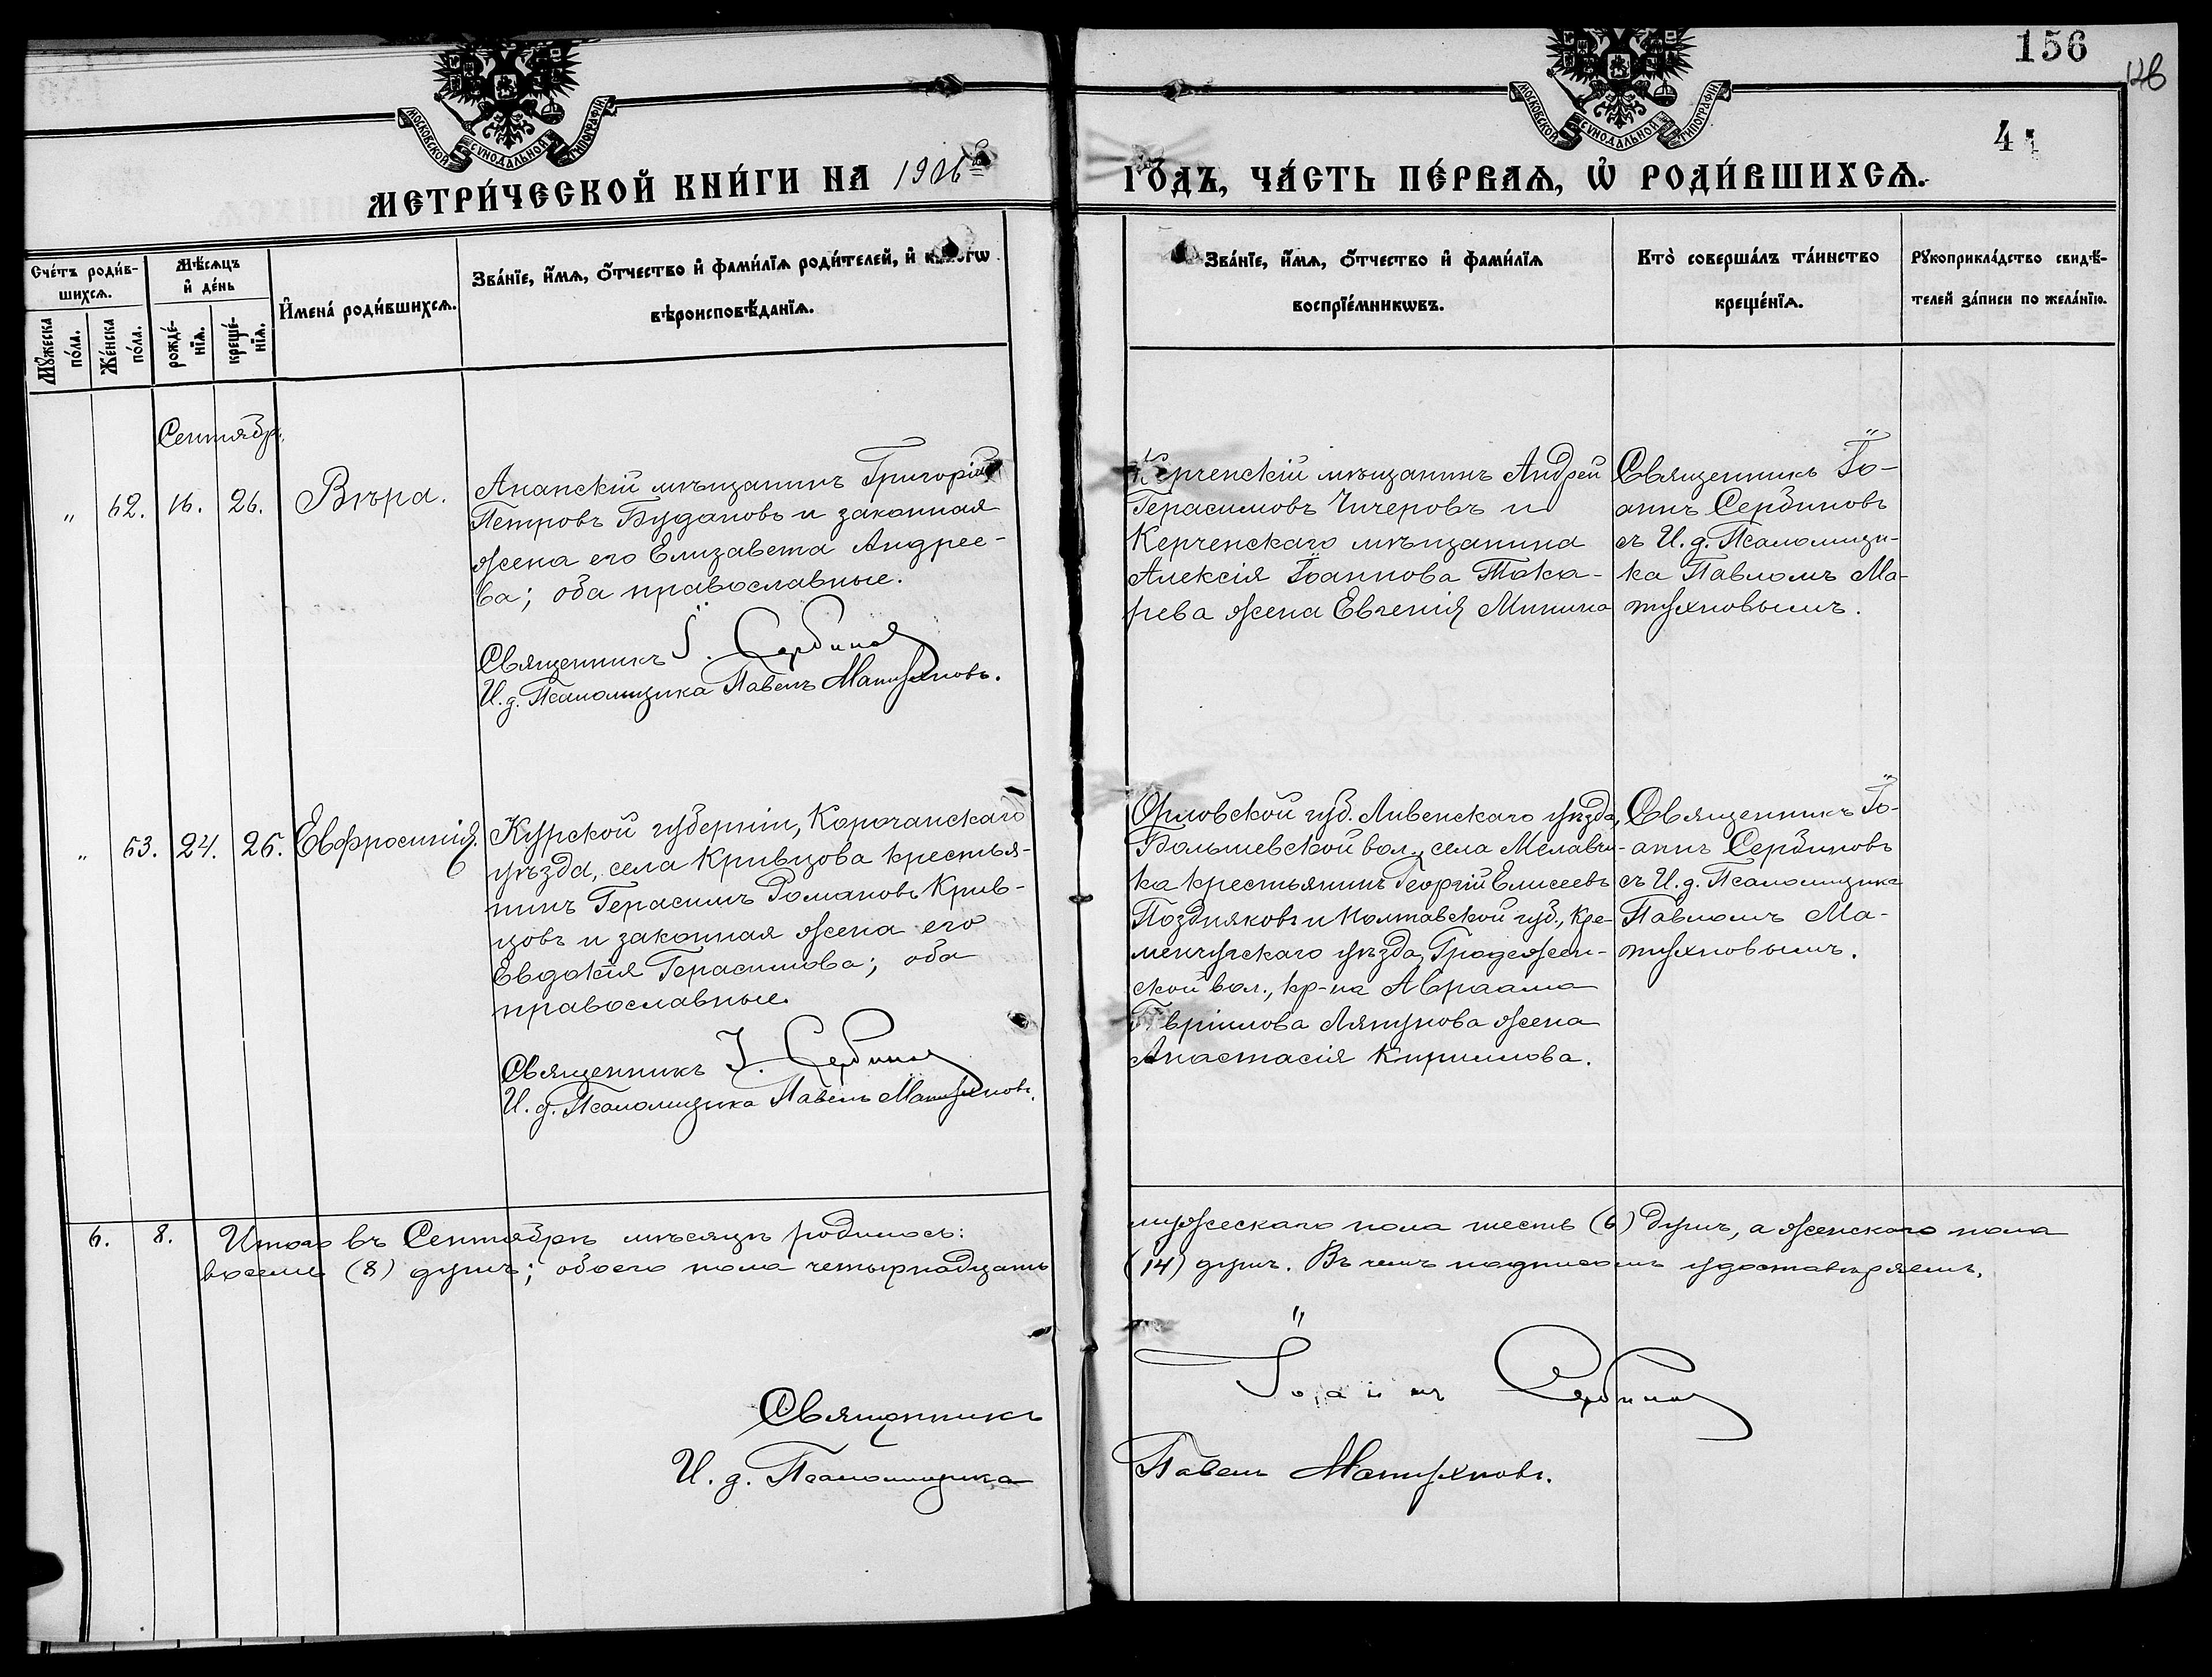 156
126
МОСКОВСКОЙ СѴНОДАЛЬНОЙ ТИПОГРАФІИ
МОСКОВСКОЙ СѴНОДАЛЬНОЙ ТИПОГРАФІИ
4
МЕТРИ́ЧЕСКОЙ КНИ́ГИ НА 1906
ГО́ДЪ, ЧА́СТЬ ПЕ́РВАѦ, Ѡ҆ РОДИ́ВШИХСѦ.
Сче́тъ роди́в-
шихсѧ.
Мꙋ́жеска по́ла.
Же́нска по́ла.
Мѣ́сѧцъ
и҆ де́нь
рожде́-
нїѧ.
креще́-
нїѧ.
И҆мена́ роди́вшихсѧ.
Зва́нїе, и҆́мѧ, ѻ҆́тчество и҆ фами́лїѧ роди́телей, и҆
вѣроисповѣ́данїѧ.
Зва́нїе, и҆́мѧ, ѻ҆́тчество и҆ фами́лїѧ
воспрїе́мникѡвъ.
Кто̀ соверша́лъ та́инство
креще́нїѧ.
Рꙋкоприкла́дство свидѣ́-
телей за́писи по жела́нїю.
Сентябр.
" 62. 16. 26. Вѣра.
Анапскій мѣщанинъ Григорій
Петровъ Будановъ и законная
жена его Елизавета Андрее-
ва; оба православные.
Священникъ І. Сербинов
И. д. Псаломщика Павелъ Матухновъ.
Керченскій мѣщанинъ Андрей
Герасимовъ Чичеровъ и
Керченскаго мѣщанина
Алексія Іоаннова Тока-
рева жена Евгенія Минина
Священникъ Іо-
аннъ Сербиновъ
съ И. д. Псаломщи-
ка Павломъ Ма-
тухновымъ.
" 63. 24. 26. Евфросинія.
Курской губерніи, Корочанскаго
уѣзда, села Кривцова крестья-
нинъ Герасимъ Романовъ Крив-
цовъ и законная жена его
Евдокія Герасимова; оба
православные.
Священникъ І. Сербинов
И. д. Псаломщика Павелъ Матухновъ.
Орловской губ. Ливенскаго уѣзда,
вол., села Мелавчи-
ка крестьянинъ Георгій Елисеевъ
Поздняковъ и Полтавской губ., Кре-
менчугскаго уѣзда, Градижен-
ской вол., кр-на Авраама
Гавріилова Ляпунова жена
Анастасія Кириллова.
Священникъ Іо-
аннъ Сербиновъ
съ И. д. Псаломщика
Павломъ Ма-
тухновымъ.
6. 8. Итого въ Сентябрѣ мѣсяцѣ родилось:
мужескаго пола шесть (6) душъ, а женскаго пола
восемь (8) душъ; обоего пола четырнадцать
(14) душъ. Въ чемъ подписомъ удостовѣряемъ.
Священникъ
Іоаннъ Сербинов
И. д. Псаломщика
Павелъ Матухновъ.